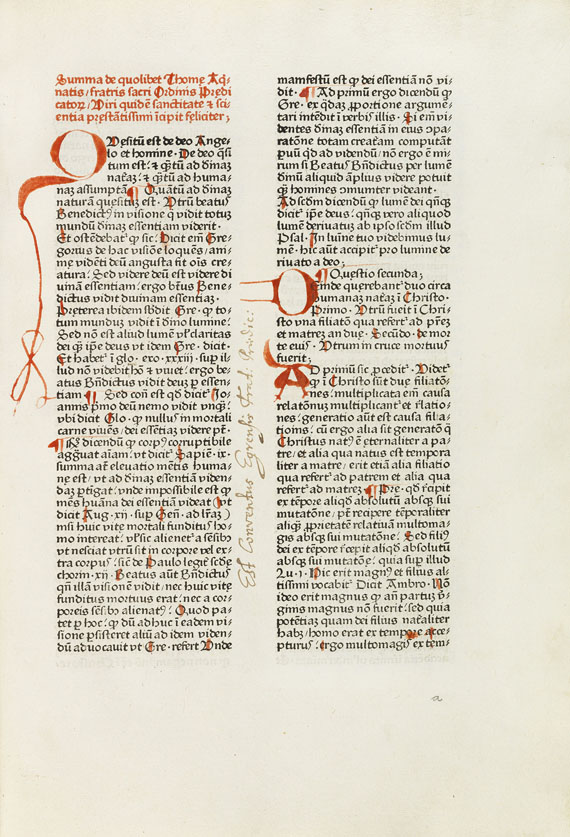 Summa de quolibet Thomę Aq̃-
natis/fratris sacri Ordinis Prędi
catorꝝ/Viri quidẽ sanctitate ⁊ sci-
entia pręstãtissimi ĩcipit feliciter;
QVesitũ est de deo Ange-
lo et homine· De deo q̃si
tum est/⁊ q̃tũ ad diuinaꝫ
naturaꝫ/⁊ q̃tũ ad huma-
naꝫ assumptã¶ Quãtũ ad diuinaꝫ
naturã quęsitũ est· Vtrũ beatus
Benedictꝰ in visione q̃ vidit totuꝫ
mundũ diuinaꝫ essentiam viderit·
Et ostẽdebat' ꝙ sic· Dicit eni͂ Gre-
gorius de hac visiõe loquẽs/ani-
mę vidẽti deũ angusta fit oĩs cre-
atura· Sed videre deũ est videre di
uinã essentiam/ergo btũs Bene-
dictus vidit diuinam essentiaꝫ·
Pręterea ibidem sbdit Gre· ꝙ to-
tum mundũ vidit ĩ diuino lumine·
Sed nõ est aliud lumẽ vl' claritas
dei q̃ʒ ip̃e deus vt idem Gre· dicit·
Et habet' ĩ glo· exo· xxxiij· sup̱ il-
lud nõ videbit hõ ⁊ viuet/ergo be-
atus Bñdictus vidit deuꝫ p̱ essen-
tiam ¶ Sed cõtra est qd̃ dicit' Io-
annis primo deũ nemo vidit vnq̃ʒ·
vbi dicit Glo· ꝙ nullꝰ in mortali
carne viuẽs/dei essẽtiaꝫ videre põt·
¶ Rñ· dicendũ ꝙ corpꝰ corruptibile
aggrauat aĩam/vt dicit' Sapiẽ· ix·
summa aũt eleuatio mẽtis huma-
nę est/vt ad diuinaꝫ essentiam viden-
daꝫ p̱tigat· vnde impossibile est ꝙ
mẽs humana dei essentiã videat (vt
dicit Aug· xij· sup̱ Geñ· ad lr̃aꝫ)
nisi huic vitę mortali funditus ho-
mo intereat· vl' sic alienet' a sẽsibꝰ
vt nesciat vtrũ sit in corpore vel ex-
tra corpus/sic' de Paulo legit' scd̃ę
chorin· xij· Beatus aũt Bñdictus
qñ illã visionẽ vidit/nec huic vitę
funditus mortuus erat/nec a cor-
poreis sẽsibꝰ alienatꝰ· Quod pa-
tet p̱ hoc· ꝙ dũ adhuc ĩ eadem vi-
sione p̱sisteret aliũ ad idem viden-
dũ aduocauit vt Gre· refert Vnde
manifestũ est ꝙ dei essentiã nõ vi-
dit·¶ Ad primũ ergo dicendũ ꝙ
Gre· ex q̃daꝫ ꝓportione argume-
tari intẽdit ĩ verbis illis· Si eni͂ vi-
dentes diuinaꝫ essentiam in eius ꝯpa-
ratõne totam creatam computãt
paruũ qd̃ ad videndũ/nõ ergo ẽ mi-
rum si Beatus Bñdictus per lumẽ
diuinũ aliquid ãplius videre potuit
q̃ʒ homines ꝯmuniter videant·
Ad scd̃m dicendũ ꝙ lumẽ dei q̃nqʒ
dicit' ip̃e deus/q̃nqʒ vero aliquod
lumẽ deriuatuꝫ ab ipso scd̃m illud
Psal· In lumĩe tuo videbimus lu-
mẽ· hic aũt accipit' pro lumine de-
riuato a deo;
¶ Quęstio secunda;
DEinde quęrebant' duo circa
humanaꝫ naturaꝫ ĩ Christo·
Primo· Vtrũ fuerit ĩ Chri-
sto vna filiatõ qua refert' ad pr̃eꝫ
et matreꝫ an duę· Secũdo· De mor
te eius· Vtrum in cruce mortuus
fuerit;
AD primũ sic ꝓcedit'· Videt'
ꝙ ĩ Christo sũt duę filiatõ-
nes· multiplicata eni͂ causa
relatõnuꝫ multiplicant' et rĩlatio-
nes/generatio aũt est causa filia-
tionis· cũ ergo alia sit generatõ q̃
Christus natꝰ ẽ ęternaliter a pa-
tre/et alia qua natus est tempora
liter a matre/erit etiã alia filiatio
qua refert' ad patrem et alia qua
refert' ad matreꝫ·¶ Pre· qd̃ r̃cipit
ex tẽpore aliqd̃ absolutũ absqʒ sui
mutatõne/p̃nt recipere tẽporaliter
aliq̃ ꝓprietatẽ relatiuã multoma-
gis absqʒ sui mutatõne· Sed filiꝰ
dei ex tẽpore r̃cepit aliqd̃ absolutũ
absqʒ sui mutatõne· quia sup̱ illud
Lu· i· Hic erit magnꝰ et filius al-
tissimi vocabit'· Dicit Ambro· Nõ
ideo erit magnus ꝙ añ partuꝫ vir-
ginis magnus nõ fuerit/sed quia
potẽtiaꝫ quam dei filius naturaliter
habꝫ/homo erat ex tempore acce-
pturus· Ergo multomagis ex tem-
Est Conventus Egrensis Ord. Prædic:
a